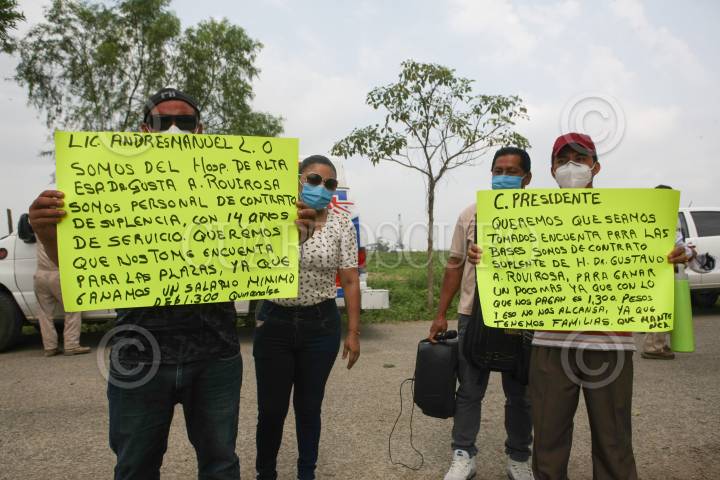 LIC ANDRES MANUEL L. O
SOMOS DEL HOSP. DE ALTA
ESP. DR GUSTA A. ROVIROSA
SOMOS PERSONAL DE CONTRATO
DE SUPLENCIA, CON 14 AÑOS
DE SERVICIO. QUEREMOS
QUE NOS TOME ENCUENTA
PARA LAS PLAZAS, YA QUE
GANAMOS UN SALARIO MINIMO
DE $ 1.300 QUINCENALES
C. PRESIDENTE
QUEREMOS QUE SEAMOS
TOMADOS ENCUENTA PARA LAS
BASES SOMOS DE CONTRATO
SUPLENTE DE H. DR. GUSTAVO
A. ROVIROSA, PARA GANAR
UN POCO MAS YA QUE CON LO
QUE NOS PAGAN ES 1,300 PESOS
I ESO NO NOS ALCANSA, YA QUE
TENEMOS FAMILIAS. QUE MANTE
NER